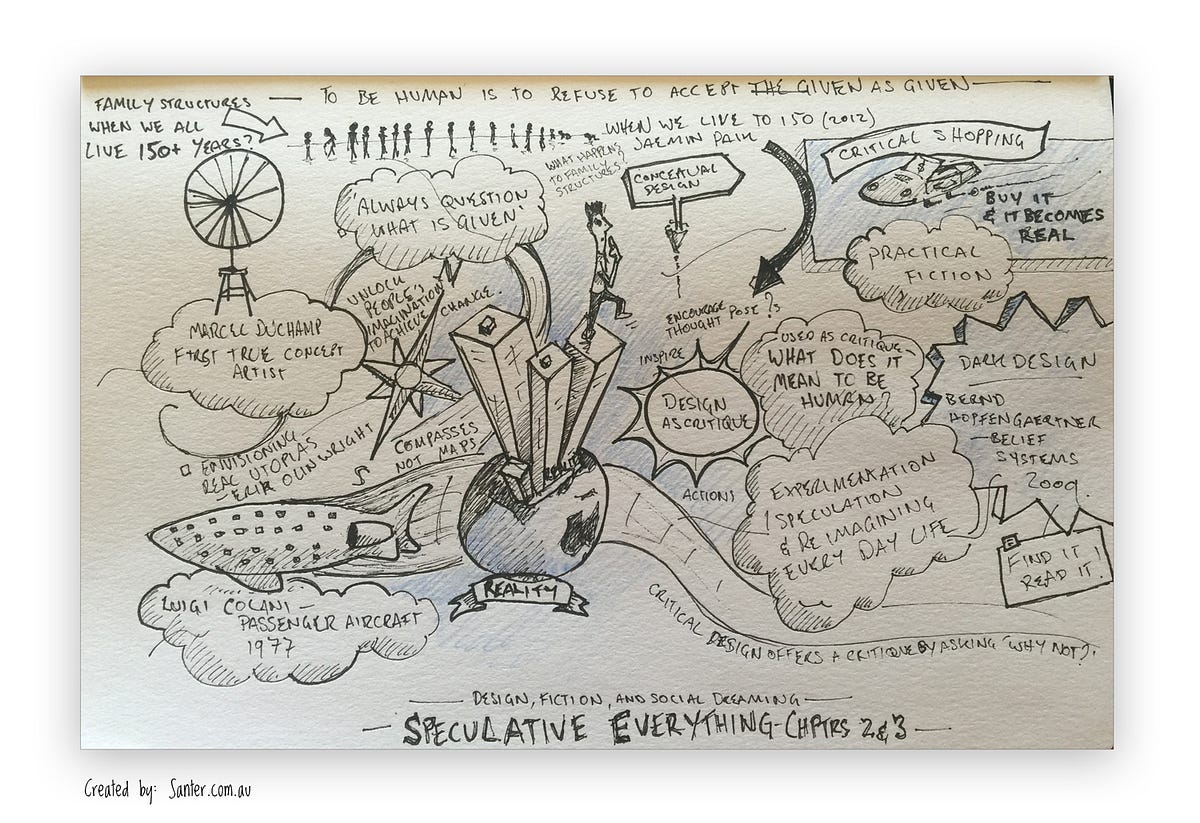 TO BE HUMAN IS TO REFUSE TO ACCEPT THE GIVEN AS GIVEN
FAMILY STRUCTURES
WHEN WE ALL
LIVE 150+ YEARS?
WHEN WE LIVE TO 150 (2012)
JAEMIN PAIK
WHAT HAPPENS
TO FAMILY
STRUCTURES?
CONCEPTUAL
DESIGN
CRITICAL SHOPPING
BUY IT
& IT BECOMES
REAL
PRACTICAL
FICTION
'ALWAYS QUESTION
WHAT IS GIVEN'
UNLOCK
PEOPLE'S
IMAGINATION
TO ACHIEVE
CHANGE.
MARCEL DUCHAMP
FIRST TRUE CONCEPT
ARTIST
ENCOURAGE
THOUGHT
POSE ?s
INSPIRE
DESIGN
AS CRITIQUE
ACTIONS
USED AS CRITIQUE
WHAT DOES IT
MEAN TO BE
HUMAN?
DARK DESIGN
BERND
HOPFENGAERTNER
—BELIEF
SYSTEMS
2009.
FIND IT!
READ IT!
ENVISIONING
REAL UTOPIAS
—ERIK OLIN WRIGHT
COMPASSES
NOT MAPS
EXPERIMENTATION
SPECULATION
& REIMAGINING
EVERY DAY LIFE
REALITY
LUIGI COLANI—
PASSENGER AIRCRAFT
1977
CRITICAL DESIGN OFFERS A CRITIQUE BY ASKING "WHY NOT?"
— DESIGN, FICTION, AND SOCIAL DREAMING —
— SPECULATIVE EVERYTHING - CHPTRS 2 & 3 —
Created by: Santer.com.au